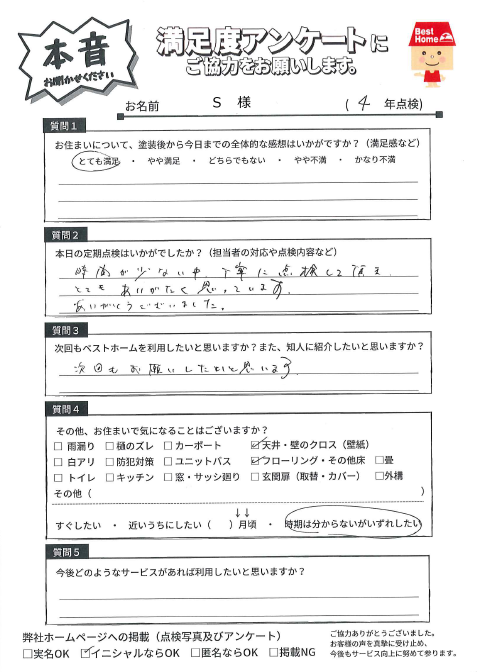 本音
お聞かせください
満足度アンケートに
ご協力をお願いします。
Best Home
お名前 S 様 (4 年点検)
質問1
お住まいについて、塗装後から今日までの全体的な感想はいかがですか?(満足感など)
とても満足 ・ やや満足 ・ どちらでもない ・ やや不満 ・ かなり不満
質問2
本日の定期点検はいかがでしたか?(担当者の対応や点検内容など)
時間が少ない中、丁寧に点検して頂き
とてもありがたく思っています。
ありがとうございました。
質問3
次回もベストホームを利用したいと思いますか?また、知人に紹介したいと思いますか?
次回もお願いしたいと思います
質問4
その他、お住まいで気になることはございますか?
□ 雨漏り □ 樋のズレ □ カーポート ☑ 天井・壁のクロス(壁紙)
□ 白アリ □ 防犯対策 □ ユニットバス ☑ フローリング・その他床 □畳
□ トイレ □ キッチン □ 窓・サッシ廻り □ 玄関扉(取替・カバー) □外構
その他( )
↓↓
すぐしたい ・ 近いうちにしたい( )月頃 ・ 時期は分からないがいずれしたい
質問5
今後どのようなサービスがあれば利用したいと思いますか?
弊社ホームページへの掲載(点検写真及びアンケート)
□実名OK ☑イニシャルならOK □匿名ならOK □掲載NG
ご協力ありがとうございました。
お客様の声を真摯に受け止め、
今後もサービス向上に努めて参ります。